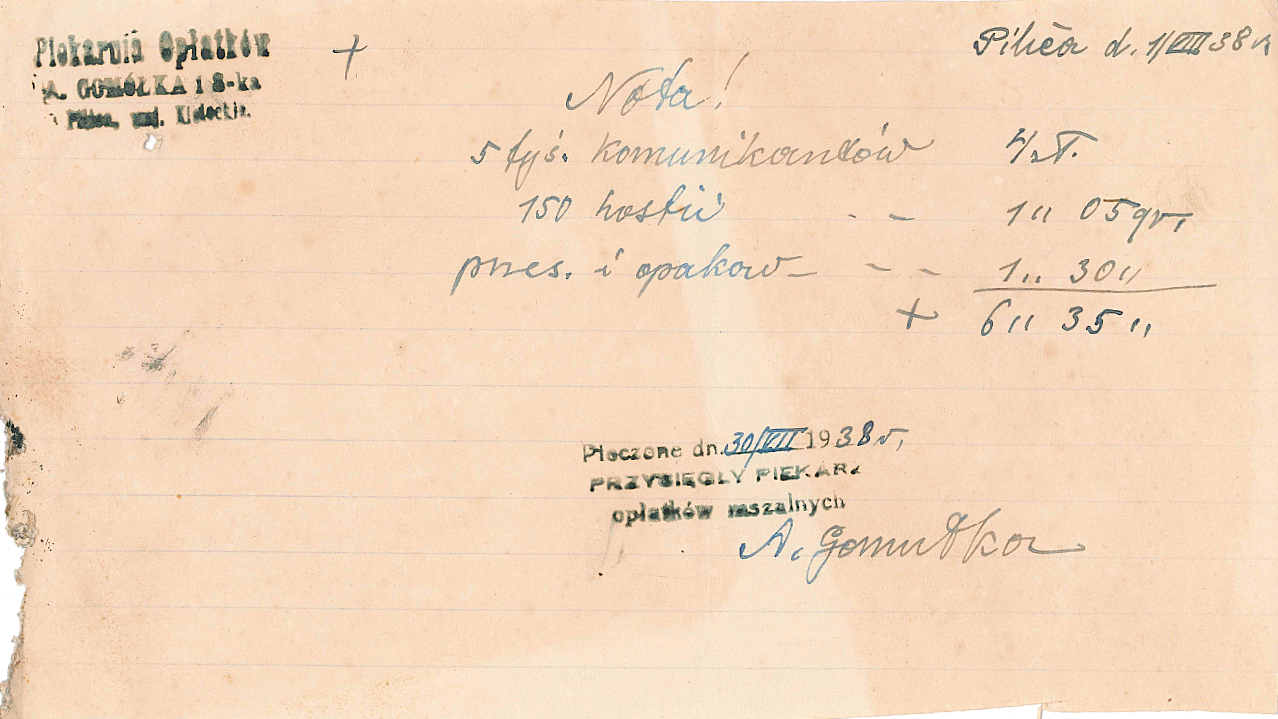 Piekarnia Opłatków
A. GOMÓŁKA i S-ka
Pilica, woj. Kieleckie.
+
Pilica d. 1/VIII 38 r.
Nota!
5 tyś. komunikantów 4 zł.
150 hostii - - 1 " 05 gr.
przes. i opakow - - - 1 " 30 "
+ 6 " 35 "
Pieczone dn. 30/VII 1938 r,
PRZYSIĘGŁY PIEKARZ
opłatków mszalnych
A. Gomułka